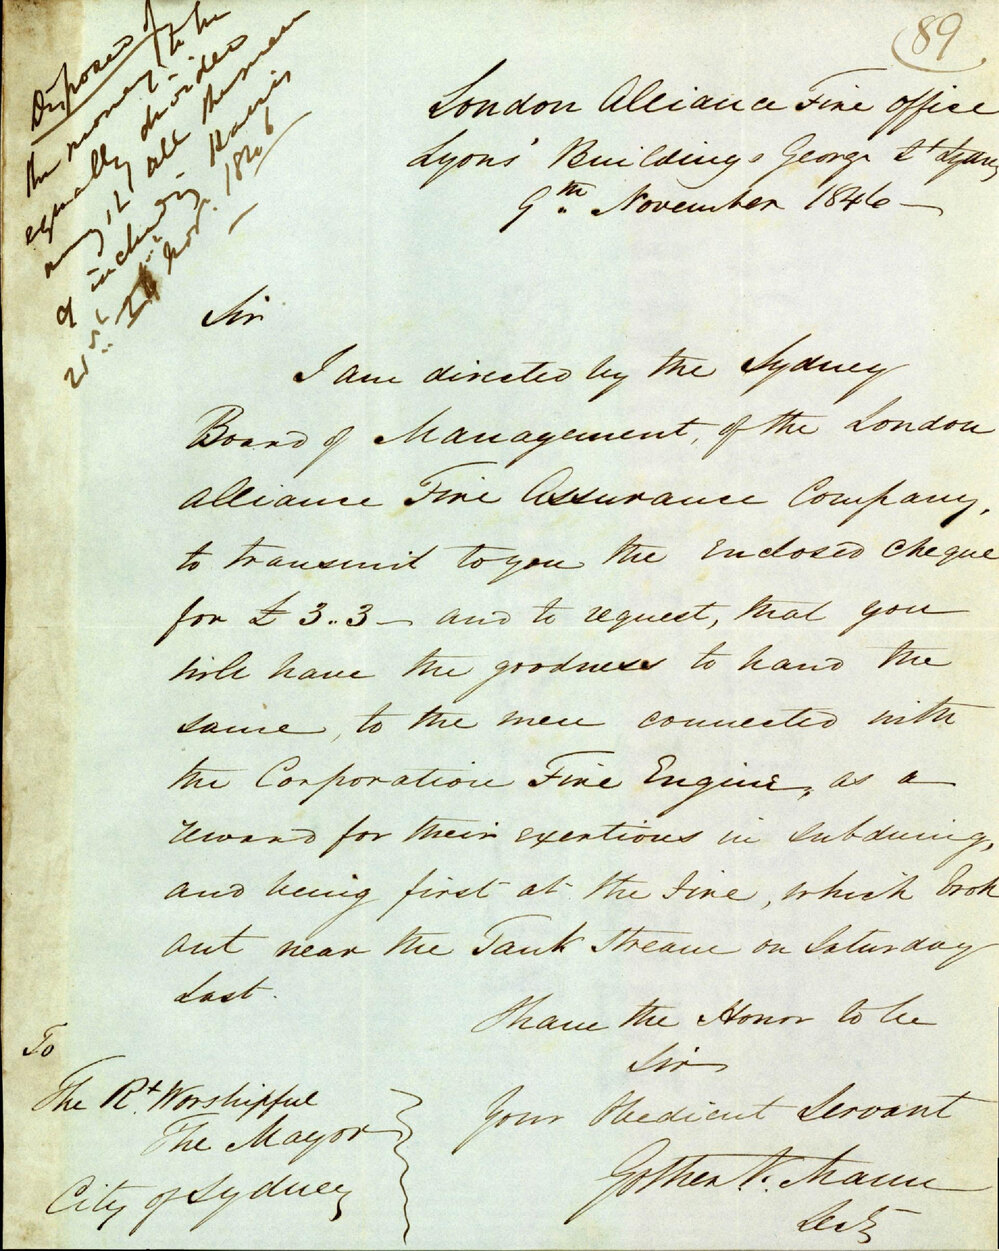 89
Disposed of
the money to be
equally divided
among st all the men
of including Harris
21st Nov. 1846
London Alliance Fire Office
Lyons' Buildings George St Sydney
9th November 1846
Sir
I am directed by the Sydney
Board of Management, of the London
Alliance Fire Assurance Company,
to transmit to you the Enclosed Cheque
for £3..3 - and to request, that you
will have the goodness to hand the
same, to the men connected with
the Corporation Fire Engine, as a
reward for their exertions in subduing,
and being first at the Fire, which broke
out near the Tank Stream on Saturday
Last.
I have the Honor to be
Sir
Your Obedient Servant
Gother K. Mann
Secty
To
The Rt. Worshipful
The Mayor
City of Sydney